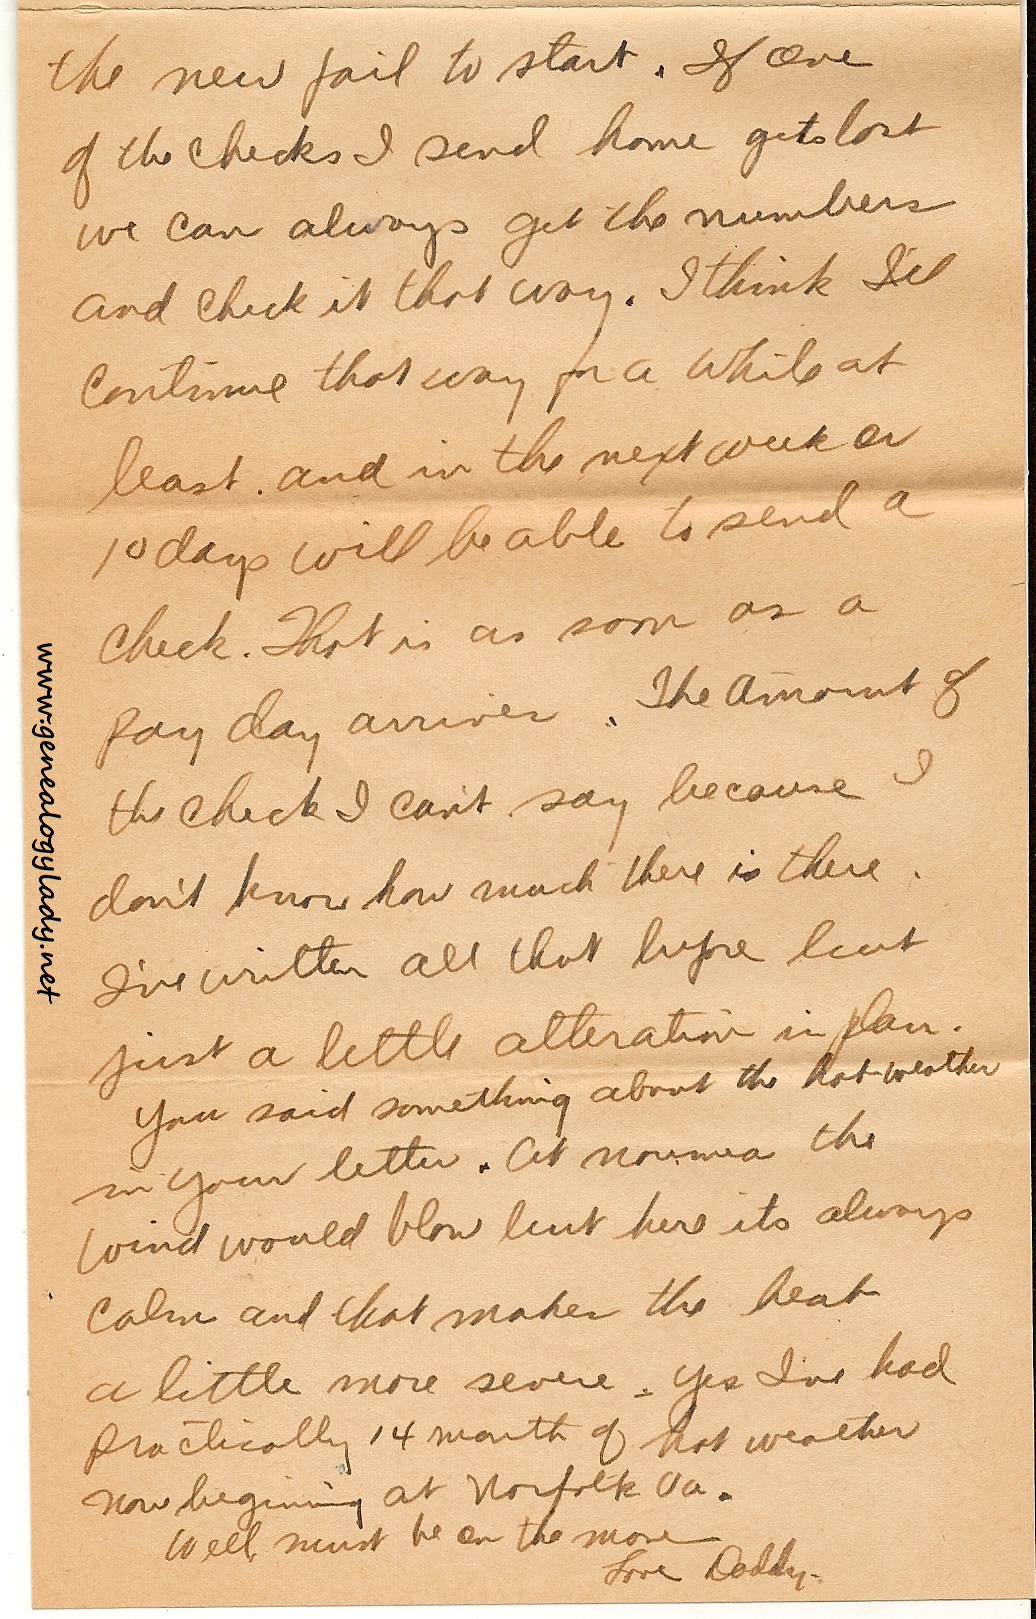 the new jail to start. If one
of the checks I send home gets lost
we can always get the numbers
and check it that way. I think I'll
continue that way for a while at
least. and in the next week or
10 days will be able to send a
check. That is as soon as a
pay day arrives. The amount of
the check I can't say because I
don't know how much there is there.
I've written all that before but
just a little alteration in plan.
You said something about the hot weather
in your letter. At Noumea the
wind would blow but here its always
calm and that makes the heat
a little more severe. Yes I've had
practically 14 month of hot weather
now begining at Norfolk Va.
Well must be on the move
Love Daddy.
www.genealogylady.net